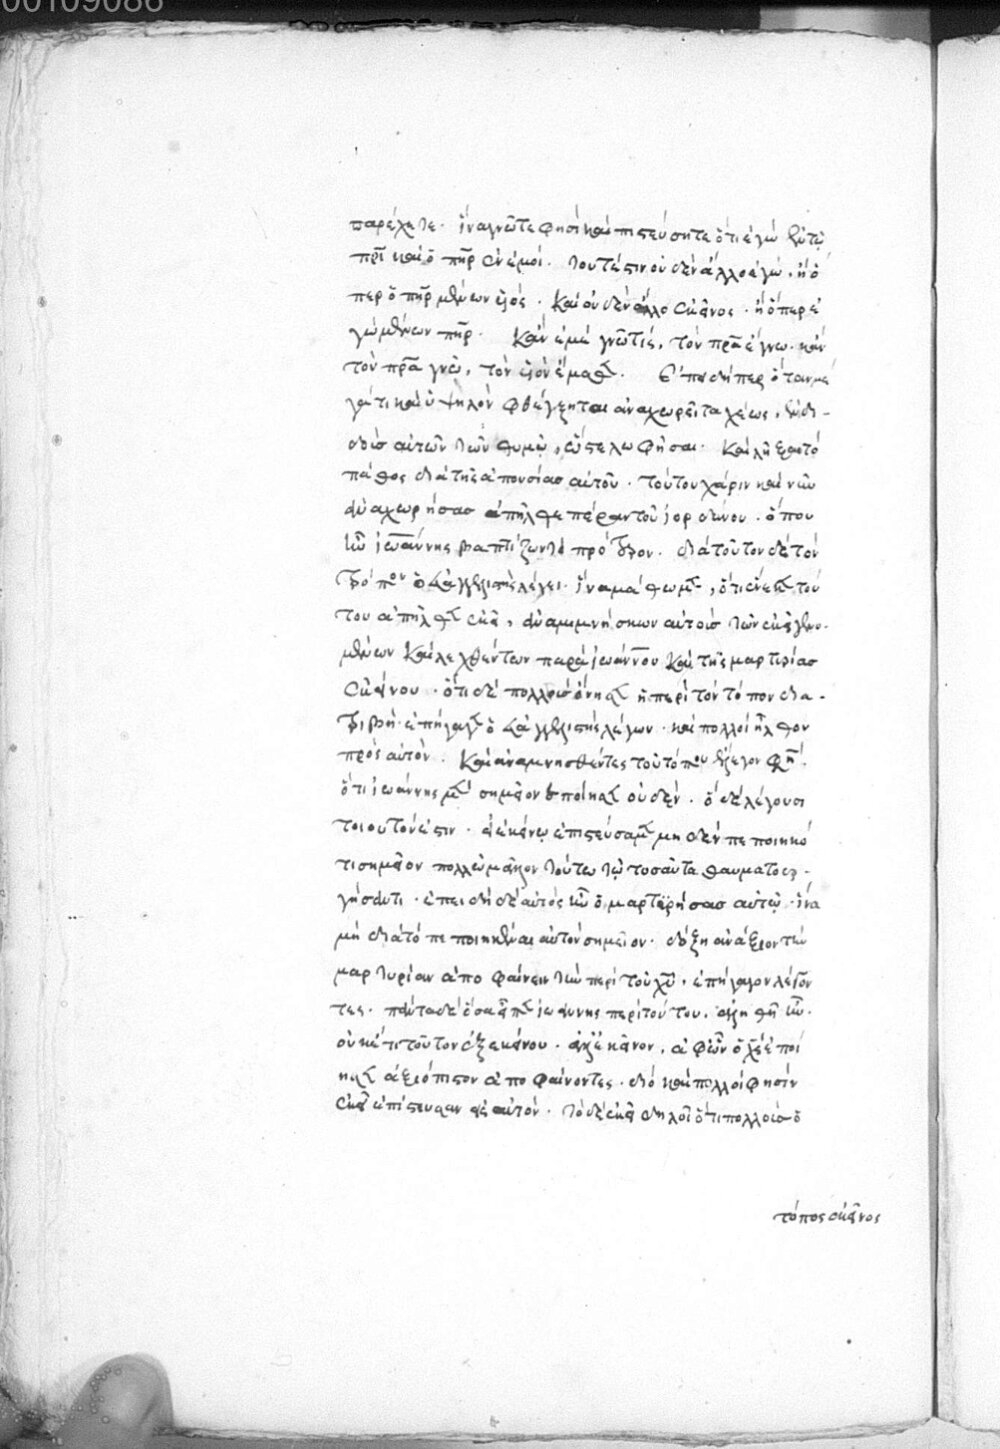 00109086
παρέχετε. ἵνα γνῶτε φησὶ καὶ πιστεύσητε ὅτι ἐγὼ ἐν τῷ
πρὶ καὶ ὁ πὴρ ἐν ἐμοί. τουτέστιν οὐδὲν ἄλλο ἐγὼ, ἢ ὅ
περ ὁ πὴρ μένων υἱός. Καὶ οὐδὲν ἄλλο ἐκεῖνος. ἢ ὅπερ ἐ
γὼ μένων πὴρ. Κἂν ἐμὲ γνῷ τίς, τὸν πρα ἔγνω. κἂν
τὸν πρα γνῷ, τὸν υἱὸν ἔμαθεν. Ἐπειδήπερ ὅταν μέ
γα τι καὶ ὑψηλὸν φθέγξηται ἀναχωρεῖ ταχέως, ἐνδι-
δοὺς αὐτῶν τῶ θυμῷ, ὥστε λωφῆσαι. Καὶ λῆξαι τὸ
πάθος διὰ τῆς ἀπουσίας αὐτοῦ. τούτου χάριν καὶ νῦν
ἀναχωρήσας ἀπῆλθε πέραν τοῦ ἰορδάνου. ὅπου
ἦν ἰωάννης βαπτίζων τὸ πρότερον. διὰ τοῦτον δὲ τὸν
τρόπον ὁ εὐαγγελιστὴς λέγει. ἵνα μάθωμεν, ὅτι ἕνεκεν τού
του ἀπῆλθεν ἐκεῖ, ἀναμιμνήσκων αὐτοὺς τῶν ἐκεῖ γενο-
μένων καὶ λεχθέντων παρὰ ἰωάννου καὶ τῆς μαρτυρίας
ἐκείνου. ὅτι δὲ πολλοὺς ὤνησεν ἡ περὶ τὸν τόπον δια-
τριβὴ. ἐπήγαγεν ὁ εὐαγγελιστὴς λέγων. καὶ πολλοὶ ἦλθον
πρὸς αὐτὸν. Καὶ ἀναμνησθέντες τοῦ τόπου ἔλεγον φησί.
ὅτι ἰωάννης μὲν σημεῖον ἐποίησεν οὐδέν. ὃ δὲ λέγουσι
τοιοῦτόν ἐστιν. εἰ ἐκείνῳ ἐπιστεύσαμεν μηδὲν πεποιηκό
τι σημεῖον πολλῷ μᾶλλον τούτω τῷ τοσαῦτα θαυματουρ-
γήσαντι. ἐπειδὴ δὲ αὐτὸς ἦν ὁ μαρτυρήσας αὐτῷ. ἵνα
μὴ διὰ τὸ πεποιηκέναι αὐτὸν σημεῖον. δόξῃ ἀνάξιον τὴν
μαρτυρίαν ἀποφαίνειν τὴν περὶ τοῦ χῦ, ἐπήγαγον λέγον
τες. πάντα δὲ ὅσα εἶπεν ἰωάννης περὶ τούτου, ἀληθῆ ἦν.
οὐκέτι τοῦτον ἐξ ἐκείνου. ἀλλ' ἐκεῖνον, ἀφ' ὧν ὁ χς ἐποί
ησεν ἀξιόπιστον ἀποφαίνοντες. διὸ καὶ πολλοὶ φησὶν
ἐκεῖ ἐπίστευσαν εἰς αὐτόν. τὸ δὲ ἐκεῖ δηλοῖ ὅτι πολλοὺς ὁ
τόπος ἐκεῖνος